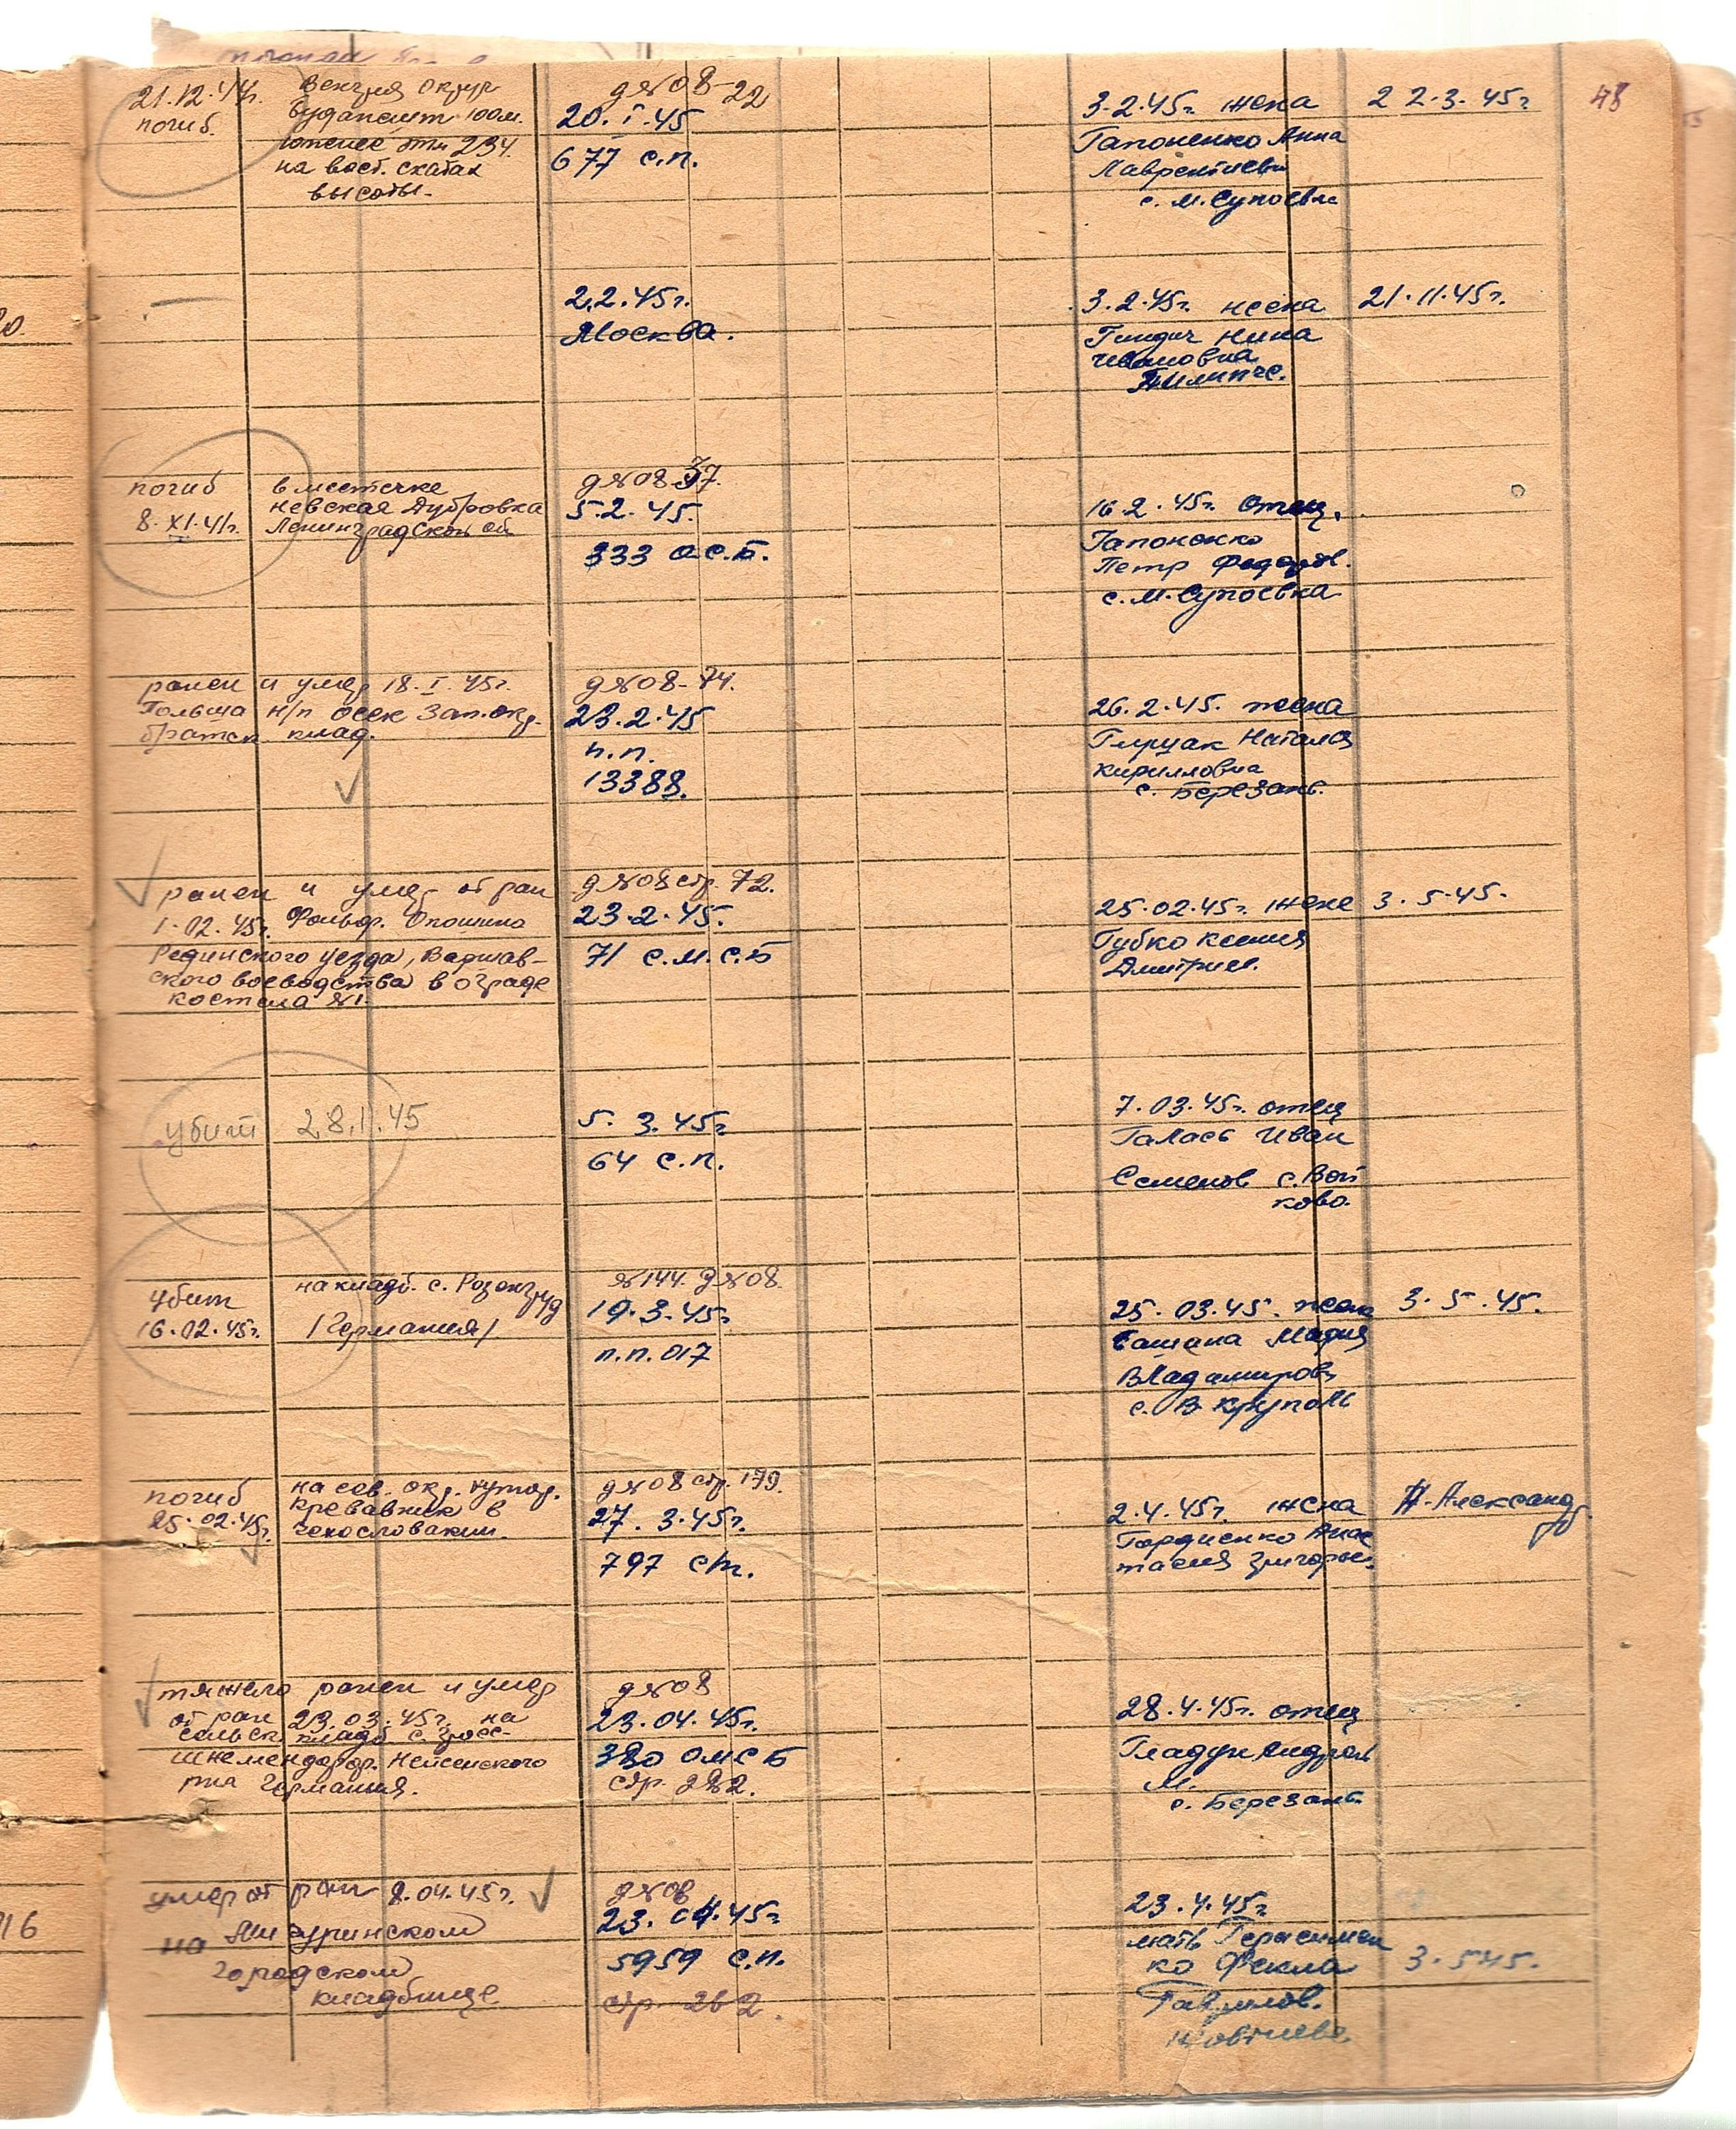 48
21.12.44г. погиб.
Венгрия округ
Будапешт 100м.
южнее отм 234.
на вост. скатах
высоты.
д №08-22
20.I.45
677 с.п.
3.2.45г. жена
Гапоненко Анна
Лаврентиевн
с. М.Супоевка
22.3.45г
2.2.45г.
Москва.
3.2.45г. жена
Гиндич Нина
Ивановна
21.11.45г.
погиб
8.XI.41г.
в местечке
Невская Дубровка
Ленинградской об
д №08-37.
5.2.45.
333 о.с.б.
16.2.45г. отец.
Гапоненко
Петр Федоров.
с. М.Супоевка
ранен и умер 18.I.45г.
Польша н/п Осек Зап.окр.
братск. клад.
д №08-74.
23.2.45
п.п.
13388.
26.2.45. жена
Гируак Наталия
Кирилловна
с. Березань.
ранен и умер от ран
1.02.45г. Фольвар. Опошино
Рединского уезда, Варшав-
ского воеводства в ограде
костела №1.
д №08 стр. 72.
23.2.45.
71 с.м.с.б
25.02.45г. жене
Губко Ксения
Дмитриев.
3.5.45.
убит 28.II.45
5.3.45г
64 с.п.
7.03.45г. отец
Галась Иван
Семенов с. Вой
ково.
убит
16.02.45г.
на кладб. с. Розенгруд
/Германия/
№144. д №08.
19.3.45г.
п.п. 017
25.03.45. жена
Мария
Владимировн
с. В Круполь
3.5.45.
погиб
25.02.45г.
на сев. окр. хутор.
Кревавник в
Чехословакии.
д №08 стр. 179.
27.3.45г.
797 сп.
2.4.45г. жена
Гордиенко Анас
тасия Григорьев.
Александр
тяжело ранен и умер
от ран 23.03.45г. на
сельск. кладб. с. Гросс-
шнемендорф. Нейсенского
р-на Германия.
д №08
23.04.45г.
380 ОМСБ
стр. 282.
28.4.45г. отец
Гладун Андрей
М.
с. Березань
умер от ран 8.04.45г.
на Мичуринском
городском
кладбище
д №08
23.04.45г
5959 с.п.
стр. 262.
23.4.45г
мать Герасимен
ко Фекла
Гаврилов.
3.5.45.